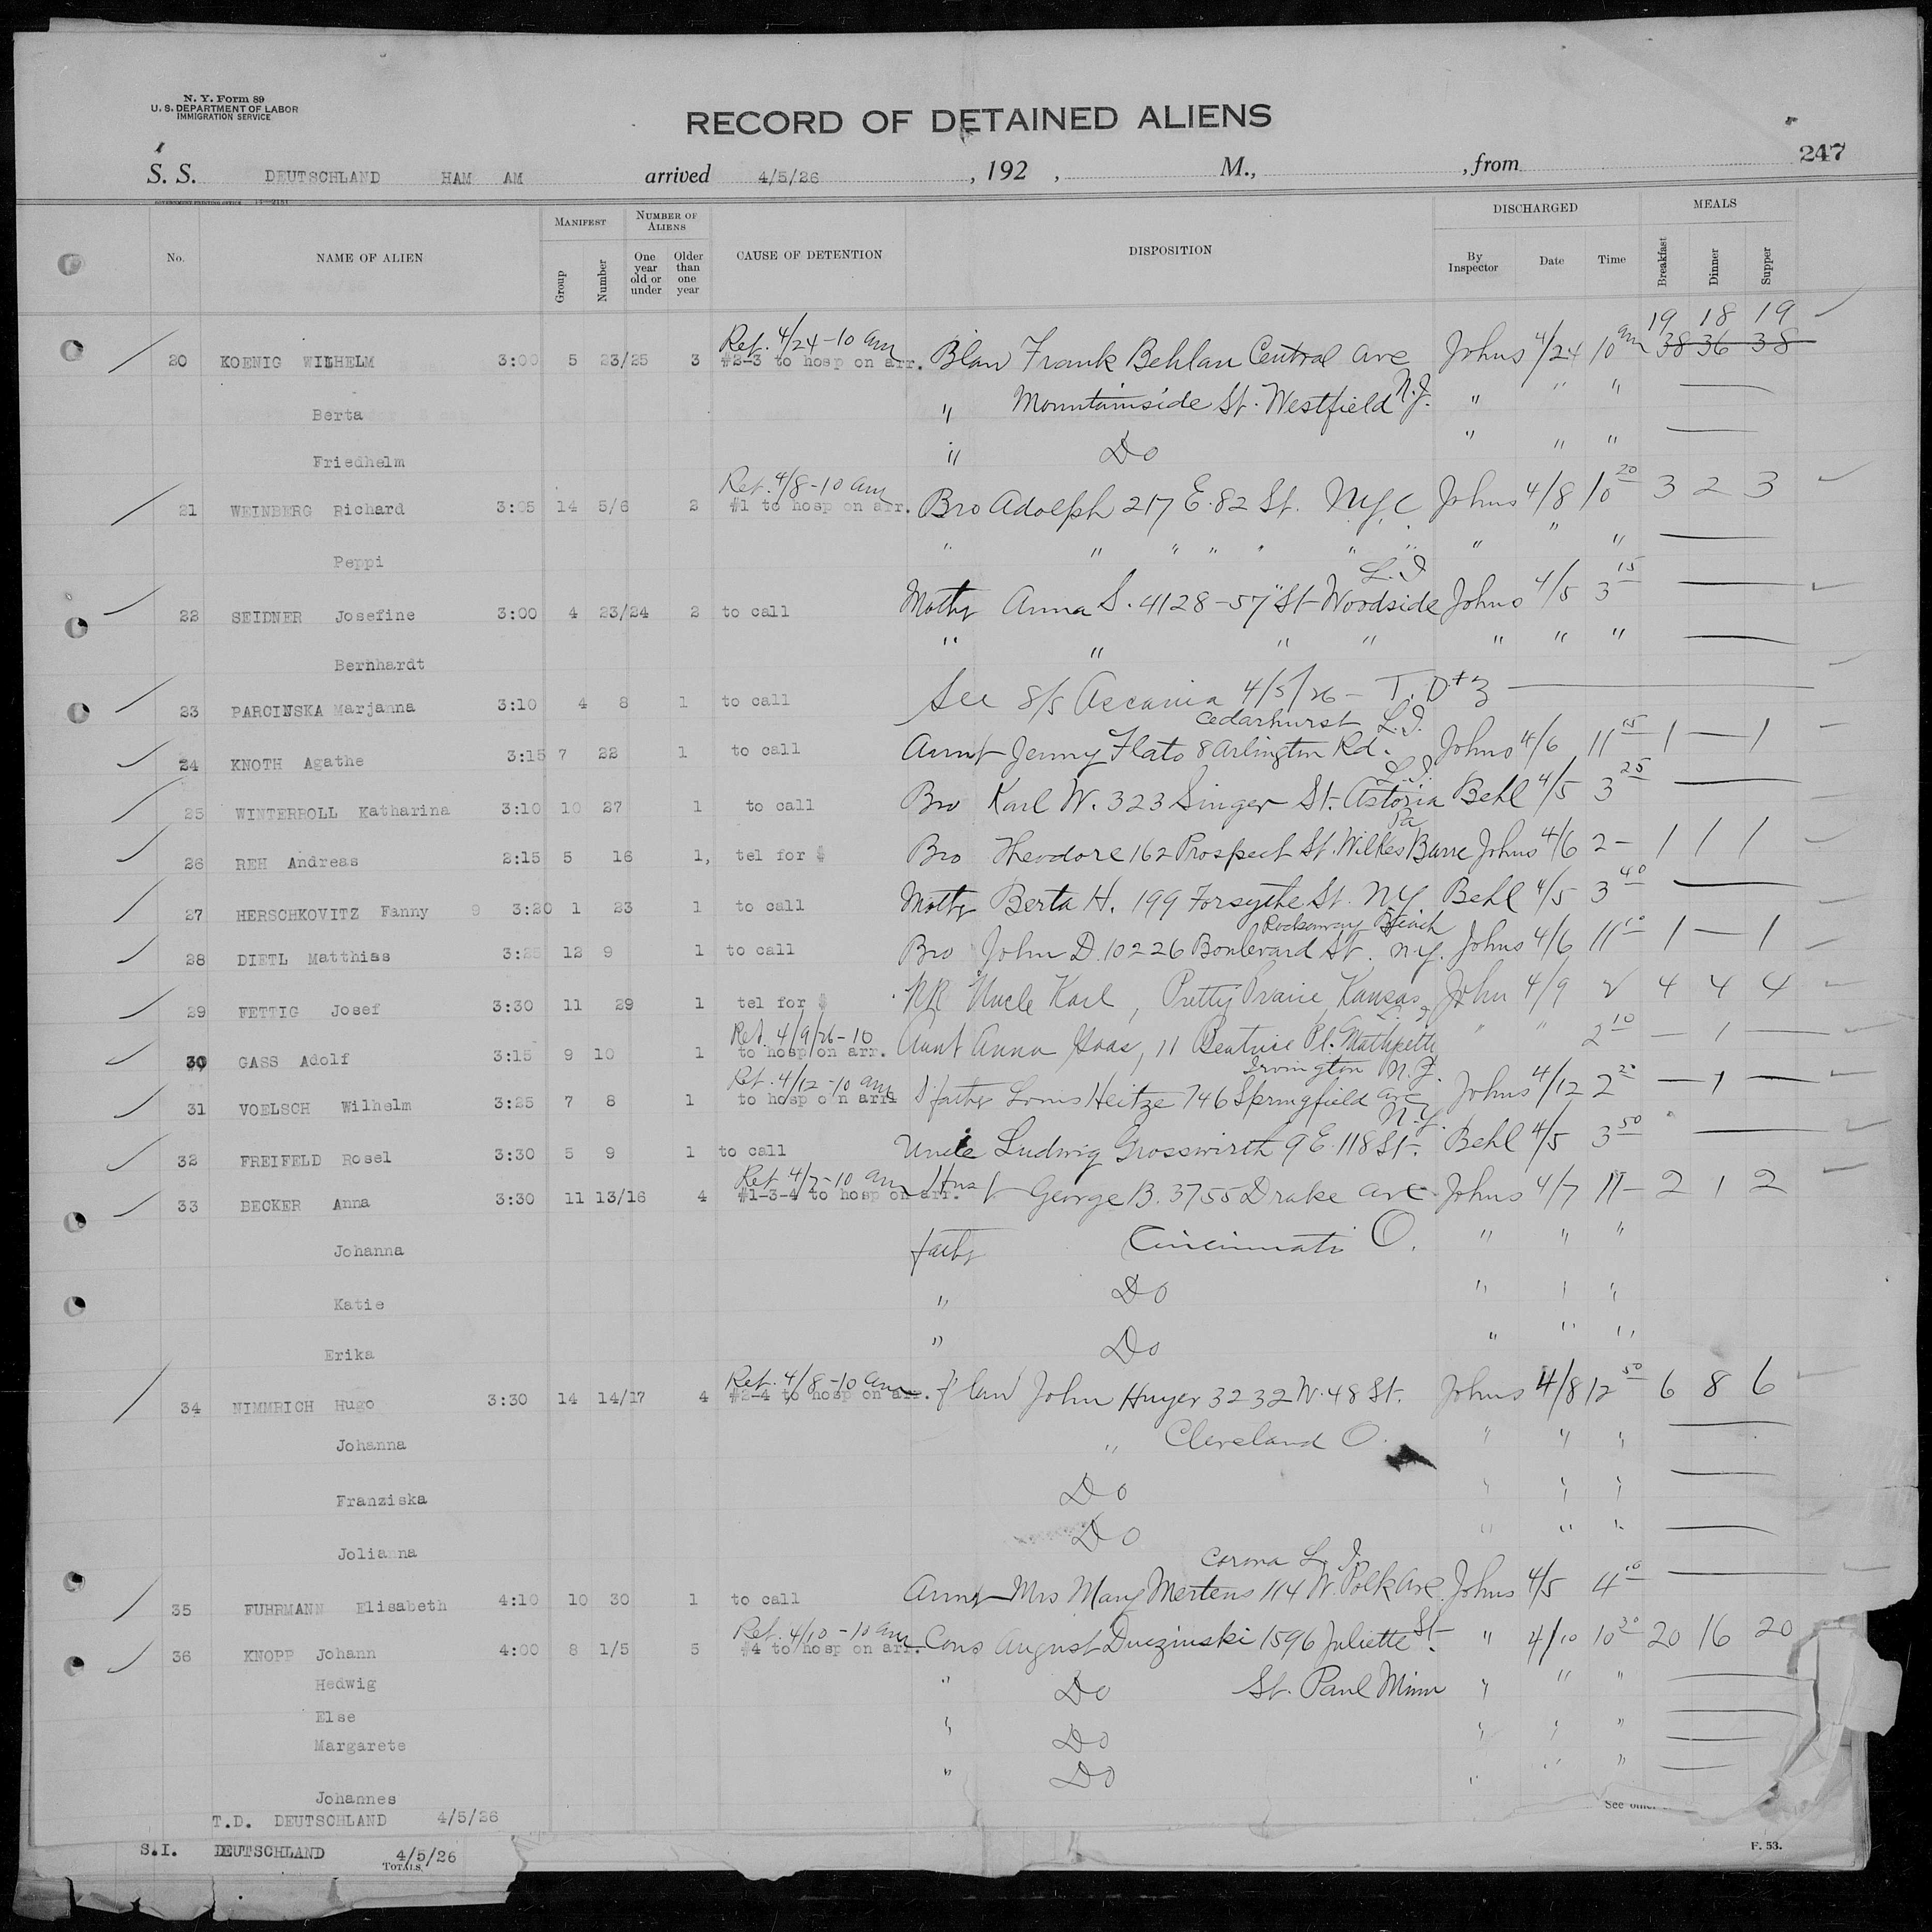 N. Y. Form 89
U. S. DEPARTMENT OF LABOR
IMMIGRATION SERVICE
RECORD OF DETAINED ALIENS
247
S. S. DEUTSCHLAND HAM AM arrived 4/5/26, 192 , M., , from
GOVERNMENT PRINTING OFFICE 11—2151
No. NAME OF ALIEN MANIFEST Group Number NUMBER OF ALIENS One year old or under Older than one year CAUSE OF DETENTION DISPOSITION DISCHARGED By Inspector Date Time MEALS Breakfast Dinner Supper
Ret. 4/24-10 am 19 18 19
20 KOENIG WILHELM 3:00 5 23/25 3 #2-3 to hosp on arr. Blaw Frank Behlau Central Ave Johns 4/24 10 am 38 36 38
Berta " Mountainside St. Westfield N.J. " " "
Friedhelm " Do " " "
Ret. 4/8-10 am
21 WEINBERG Richard 3:05 14 5/6 2 #1 to hosp on arr. Bro Adolph 217 E. 82 St. NYC Johns 4/8 10 20 3 2 3
Peppi " " " " " " " " " "
L.I
22 SEIDNER Josefine 3:00 4 23/24 2 to call Mothr Anna S. 4128-57" St Woodside Johns 4/5 3 15
Bernhardt " " " " " " "
23 PARCINSKA Marjanna 3:10 4 8 1 to call See S/S Ascania 4/5/26 - T.D + 3
Cedarhurst L.I.
24 KNOTH Agathe 3:15 7 22 1 to call Aunt Jenny Flato 8 Arlington Rd. Johns 4/6 11 15 1 — 1
L.I.
25 WINTERROLL Katharina 3:10 10 27 1 to call Bro Karl W. 323 Singer St. Astoria Behl 4/5 3 25
Pa
26 REH Andreas 2:15 5 16 1, tel for $ Bro Theodore 162 Prospect St. Wilkes Barre Johns 4/6 2 - 1 1 1
27 HERSCHKOVITZ Fanny 9 3:20 1 23 1 to call Mothr Berta H. 199 Forsythe St. NY Behl 4/5 3 40
Rockaway Beach
28 DIETL Matthias 3:25 12 9 1 to call Bro John D. 10226 Boulevard St. N.Y. Johns 4/6 11 10 1 — 1
29 FETTIG Josef 3:30 11 29 1 tel for $ RR Uncle Karl, Pretty Prairie, Kansas John 4/9 2 4 4 4
Ret. 4/9/26-10
30 GASS Adolf 3:15 9 10 1 to hosp on arr. Aunt Anna Gaas, 11 Beatrice Pl. " " 2 10 — 1 —
Ret. 4/12-10 am Irvington N.J.
31 VOELSCH Wilhelm 3:25 7 8 1 to hosp on arr. S fathr Louis Heitze 746 Springfield Ave Johns 4/12 2 20 — 1 —
N.Y.
32 FREIFELD Rosel 3:30 5 9 1 to call Uncle Ludwig Grosswirth 9 E. 118 St. Behl 4/5 3 50
Ret 4/7-10 am
33 BECKER Anna 3:30 11 13/16 4 #1-3-4 to hosp on arr. Hus George B. 3755 Drake Ave. Johns 4/7 11 — 2 1 2
Johanna fathr Cincinnati O. " " "
Katie " Do " " "
Erika " Do " " "
Ret. 4/8-10 am
34 NIMMRICH Hugo 3:30 14 14/17 4 #2-4 to hosp on arr. f law John Huyer 3232 W. 48 St. Johns 4/8 12 50 6 8 6
Johanna " Cleveland O. " " "
Franziska Do " " "
Jolianna Do " " "
Corona L.I.
35 FUHRMANN Elisabeth 4:10 10 30 1 to call Aunt Mrs Mary Mertens 114 W. Polk Ave. Johns 4/5 4 10
Ret. 4/10-10 am
36 KNOPP Johann 4:00 8 1/5 5 #4 to hosp on arr. Cous August Duczinski 1596 Juliette St. " 4/10 10 30 20 16 20
Hedwig " Do St. Paul Minn " " "
Else
Margarete " Do " " "
Johannes " Do " " "
T.D. DEUTSCHLAND 4/5/26
See other
S.I. DEUTSCHLAND 4/5/26
TOTALS
F. 53.